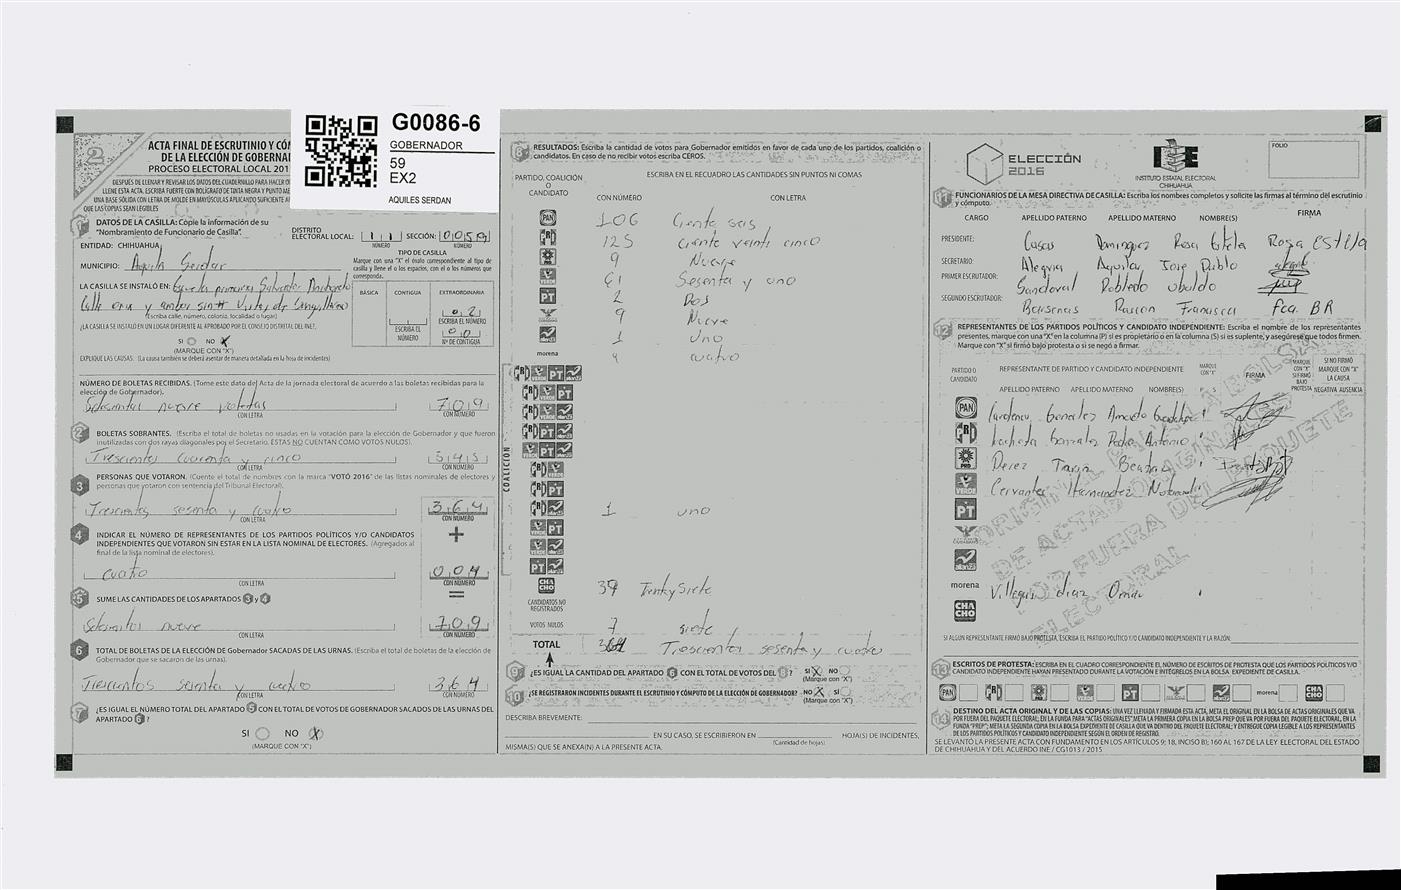 G0086-6
GOBERNADOR
59
EX2
AQUILES SERDAN
2
ACTA FINAL DE ESCRUTINIO Y CÓM
DE LA ELECCIÓN DE GOBERNA
PROCESO ELECTORAL LOCAL 201
DESPUÉS DE LLENAR Y REVISAR LOS DATOS DEL CUADERNILLO PARA HACER
LLENE ESTA ACTA. ESCRIBA FUERTE CON BOLÍGRAFO DE TINTA NEGRA Y PUNTO
UNA BASE SÓLIDA CON LETRA DE MOLDE EN MAYÚSCULAS APLICANDO SUFICIENTE
QUE LAS COPIAS SEAN LEGIBLES
1 DATOS DE LA CASILLA: Copie la información de su
"Nombramiento de Funcionario de Casilla".
DISTRITO ELECTORAL LOCAL: 11 NÚMERO SECCIÓN: 0059 NÚMERO
ENTIDAD: CHIHUAHUA
MUNICIPIO: Aquiles Serdan
LA CASILLA SE INSTALÓ EN: Escuela primaria
(Escriba calle, número, colonia, localidad o lugar)
¿LA CASILLA SE INSTALÓ EN UN LUGAR DIFERENTE AL APROBADO POR EL CONSEJO DISTRITAL DEL INE?
SI NO X
(MARQUE CON "X")
EXPLIQUE LAS CAUSAS: (La causa también se deberá asentar de manera detallada en la hoja de incidentes)
TIPO DE CASILLA
Marque con una "X" el óvalo correspondiente al tipo de
casilla y llene el o los espacios, con el o los números que
corresponda.
BÁSICA CONTIGUA EXTRAORDINARIA
02
ESCRIBA EL NÚMERO
ESCRIBA EL NÚMERO
00
Nº DE CONTIGUA
NÚMERO DE BOLETAS RECIBIDAS. (Tome este dato de Acta de la jornada electoral de acuerdo a las boletas recibidas para la
elección de Gobernador).
Setecientos nueve boletas 709
CON LETRA CON NÚMERO
2 BOLETAS SOBRANTES. (Escriba el total de boletas no usadas en la votación para la elección de Gobernador y que fueron
inutilizadas con dos rayas diagonales por el Secretario. ESTAS NO CUENTAN COMO VOTOS NULOS).
Trescientos cuarenta y cinco 345
CON LETRA CON NÚMERO
3 PERSONAS QUE VOTARON. (Cuente el total de nombres con la marca "VOTÓ 2016" de las listas nominales de electores y
personas que votaron con sentencia del Tribunal Electoral).
Trescientos sesenta y cuatro 364
CON LETRA CON NÚMERO
+
4 INDICAR EL NÚMERO DE REPRESENTANTES DE LOS PARTIDOS POLÍTICOS Y/O CANDIDATOS
INDEPENDIENTES QUE VOTARON SIN ESTAR EN LA LISTA NOMINAL DE ELECTORES. (Agregados al
final de la lista nominal de electores).
cuatro 004
CON LETRA CON NÚMERO
=
5 SUME LAS CANTIDADES DE LOS APARTADOS 3 y 4
Setecientos nueve 709
CON LETRA CON NÚMERO
6 TOTAL DE BOLETAS DE LA ELECCIÓN DE Gobernador SACADAS DE LAS URNAS. (Escriba el total de boletas de la elección de
Gobernador que se sacaron de las urnas).
Trescientos sesenta y cuatro 364
CON LETRA CON NÚMERO
7 ¿ES IGUAL EL NÚMERO TOTAL DEL APARTADO 5 CON EL TOTAL DE VOTOS DE GOBERNADOR SACADOS DE LAS URNAS DEL
APARTADO 6?
SI NO X
(MARQUE CON "X")
8 RESULTADOS: Escriba la cantidad de votos para Gobernador emitidos en favor de cada uno de los partidos, coalición o
candidatos. En caso de no recibir votos escriba CEROS.
PARTIDO, COALICIÓN O CANDIDATO
ESCRIBA EN EL RECUADRO LAS CANTIDADES SIN PUNTOS NI COMAS
CON NÚMERO CON LETRA
PAN 106 Ciento seis
PRI 125 ciento veinti cinco
PRD 9 Nueve
VERDE 61 Sesenta y uno
PT 2 Dos
9 Nueve
alianza 1 Uno
morena 4 cuatro
COALICIÓN
1 uno
CHACHO 37
CANDIDATOS NO REGISTRADOS
VOTOS NULOS 7 siete
TOTAL 364 Trescientos sesenta y cuatro
9 ¿ES IGUAL LA CANTIDAD DEL APARTADO 6 CON EL TOTAL DE VOTOS DEL 8? SI X NO
(Marque con "X")
10 ¿SE REGISTRARON INCIDENTES DURANTE EL ESCRUTINIO Y CÓMPUTO DE LA ELECCIÓN DE GOBERNADOR? NO X SI
(Marque con "X")
DESCRIBA BREVEMENTE:
EN SU CASO, SE ESCRIBIERON EN HOJA(S) DE INCIDENTES,
(Cantidad de hojas)
MISMA(S) QUE SE ANEXA(N) A LA PRESENTE ACTA.
ELECCIÓN
2016
IEE
INSTITUTO ESTATAL ELECTORAL
CHIHUAHUA
FOLIO
11 FUNCIONARIOS DE LA MESA DIRECTIVA DE CASILLA: Escriba los nombres completos y solicite las firmas al término del escrutinio
y cómputo.
CARGO APELLIDO PATERNO APELLIDO MATERNO NOMBRE(S) FIRMA
PRESIDENTE: Casas Dominguez Rosa Estela Rosa Estela
SECRETARIO: Alegria Aguilar Jose Pablo
PRIMER ESCRUTADOR: Sandoval Robledo Ubaldo
SEGUNDO ESCRUTADOR: Barsenas Rascon Francisca Fca. BR
12 REPRESENTANTES DE LOS PARTIDOS POLÍTICOS Y CANDIDATO INDEPENDIENTE: Escriba el nombre de los representantes
presentes, marque con una "X" en la columna (P) si es propietario o en la columna (S) si es suplente, y asegúrese que todos firmen.
Marque con "X" si firmó bajo protesta o si se negó a firmar.
PARTIDO O CANDIDATO REPRESENTANTE DE PARTIDO Y CANDIDATO INDEPENDIENTE MARQUE CON "X" FIRMA MARQUE CON "X" SI FIRMÓ BAJO PROTESTA SI NO FIRMÓ MARQUE CON "X" LA CAUSA
APELLIDO PATERNO APELLIDO MATERNO NOMBRE(S) P S NEGATIVA AUSENCIA
PAN Gonzalez
PRI Gonzalez Pedro Antonio
PRD Perez Tarin Beatriz
VERDE Cervantes Hernandez
PT
alianza
morena Villegas diaz Omar
CHACHO
SI ALGÚN REPRESENTANTE FIRMÓ BAJO PROTESTA, ESCRIBA EL PARTIDO POLÍTICO Y/O CANDIDATO INDEPENDIENTE Y LA RAZÓN:
13 ESCRITOS DE PROTESTA: ESCRIBA EN EL CUADRO CORRESPONDIENTE EL NÚMERO DE ESCRITOS DE PROTESTA QUE LOS PARTIDOS POLÍTICOS Y/O
CANDIDATO INDEPENDIENTE HAYAN PRESENTADO DURANTE LA VOTACIÓN E INTÉGRELOS EN LA BOLSA EXPEDIENTE DE CASILLA.
PAN PRI PRD VERDE PT alianza morena CHACHO
14 DESTINO DEL ACTA ORIGINAL Y DE LAS COPIAS: UNA VEZ LLENADA Y FIRMADA ESTA ACTA, META EL ORIGINAL EN LA BOLSA DE ACTAS ORIGINALES QUE VA
POR FUERA DEL PAQUETE ELECTORAL; EN LA FUNDA PARA "ACTAS ORIGINALES" META LA PRIMERA COPIA EN LA BOLSA PREP QUE VA POR FUERA DEL PAQUETE ELECTORAL, EN LA
FUNDA "PREP"; META LA SEGUNDA COPIA EN LA BOLSA EXPEDIENTE DE CASILLA QUE VA DENTRO DEL PAQUETE ELECTORAL; Y ENTREGUE COPIA LEGIBLE A LOS REPRESENTANTES
DE LOS PARTIDOS POLÍTICOS Y CANDIDATO INDEPENDIENTE SEGÚN EL ORDEN DE REGISTRO.
SE LEVANTÓ LA PRESENTE ACTA CON FUNDAMENTO EN LOS ARTÍCULOS 9; 18, INCISO B); 160 AL 167 DE LA LEY ELECTORAL DEL ESTADO
DE CHIHUAHUA Y DEL ACUERDO INE / CG1013 / 2015